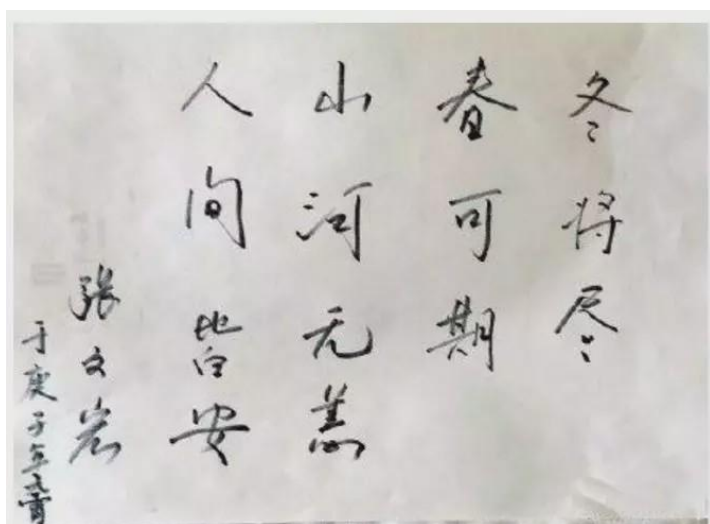 冬将尽
春可期
山河无恙
人间皆安
張文宏
于庚子年元宵